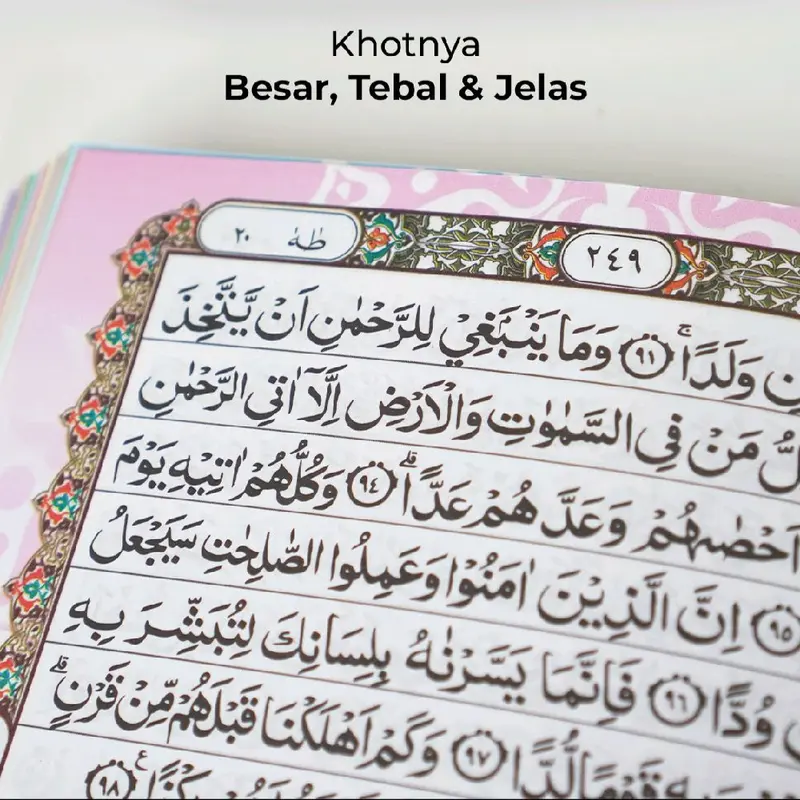 Khotnya
Besar, Tebal & Jelas
٢٤٩
طٰهٰ ٢٠
وَلَدًاۚ ﴿٩١﴾ وَمَا يَنْۢبَغِيْ لِلرَّحْمٰنِ اَنْ يَّتَّخِذَ
مَنْ فِى السَّمٰوٰتِ وَالْاَرْضِ اِلَّآ اٰتِى الرَّحْمٰنِ
اَحْصٰىهُمْ وَعَدَّهُمْ عَدًّاۗ ﴿٩٤﴾ وَكُلُّهُمْ اٰتِيْهِ يَوْمَ
﴿٩٥﴾ اِنَّ الَّذِيْنَ اٰمَنُوْا وَعَمِلُوا الصّٰلِحٰتِ سَيَجْعَلُ
وُدًّا ﴿٩٦﴾ فَاِنَّمَا يَسَّرْنٰهُ بِلِسَانِكَ لِتُبَشِّرَ بِهِ
قَوْمًا لُّدًّا ﴿٩٧﴾ وَكَمْ اَهْلَكْنَا قَبْلَهُمْ مِّنْ قَرْنٍۗ
﴿٩٨﴾